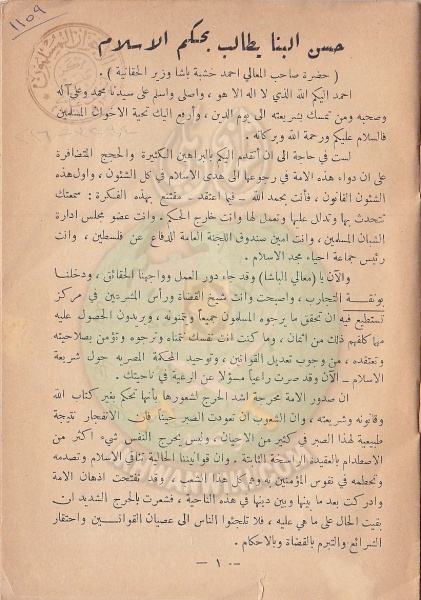 ١١٥٩
حسن البنا يطالب بحكم الاسلام
( حضرة صاحب المعالي احمد خشبة باشا وزير الحقانية ) .
احمد اليكم الله الذي لا اله الا هو ، واصلى واسلم على سيدنا محمد وعلى آله
وصحبه ومن تمسك بشريعته الى يوم الدين ، وأرفع اليك تحية الاخوان المسلمين
فالسلام عليكم ورحمة الله وبركاته .
لست في حاجة الى ان أتقدم اليكم بالبراهين الكثيرة والحجج المتضافرة
على ان دواء هذه الامة في رجوعها الى هدي الاسلام في كل الشئون ، واول هذه
الشئون القانون ، فأنت بحمد الله ــ فيما اعتقد ــ مقتنع بهذه الفكرة : سمعتك
تتحدث بها وتدلل عليها وتعمل لها وانت خارج الحكم . وانت عضو مجلس ادارة
الشبان المسلمين ، وانت امين صندوق اللجنة العامة للدفاع عن فلسطين ، وانت
رئيس جماعة احياء مجد الاسلام .
والآن يا (معالي الباشا) وقد جاء دور العمل وواجهنا الحقائق ، ودخلنا
بوتقة التجارب ، واصبحت وانت شيخ القضاة ورأس المشرعين في مركز
تستطيع فيه ان تحقق ما يرجوه المسلمون جميعاً ويتمنونه ، ويريدون الحصول عليه
مهما كلفهم ذلك من اثمان ، وما كنت انت نفسك تتمناه وترجوه وتؤمن بصلاحيته
وتعتقده ، من وجوب تعديل القوانين ، وتوحيد المحكمة المصرية حول شريعة
الاسلام ــ الآن وقد صرت راعياً مسؤلا عن الرعية في ناحيتك .
ان صدور الامة محرجة اشد الحرج لشعورها بأنها تحكم بغير كتاب الله
وقانونه وشريعته ، وان الشعوب ان تعودت الصبر حيناً فان الانفجار نتيجة
طبيعية لهذا الصبر في كثير من الاحيان ، وليس يحرج النفس شيء اكثر من
الاصطدام بالعقيدة الراسخة الثابتة . وان قوانيننا الحالية تنافي الاسلام وتصدمه
وتحطمه في نفوس المؤمنين به وهم كل هذا الشعب ، وقد تفتحت اذهان الامة
وادركت بعد ما بينها وبين دينها في هذه الناحية ، فشعرت بالحرج الشديد ان
بقيت الحال على ما هي عليه ، فلا تلجئوا الناس الى عصيان القوانين واحتقار
الشرائع والتبرم بالقضاة وبالاحكام .
ــ ١٠ ــ